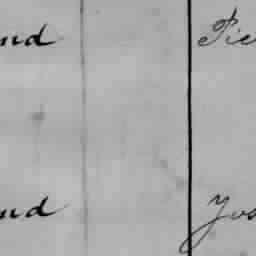 nd Pie
nd Jos